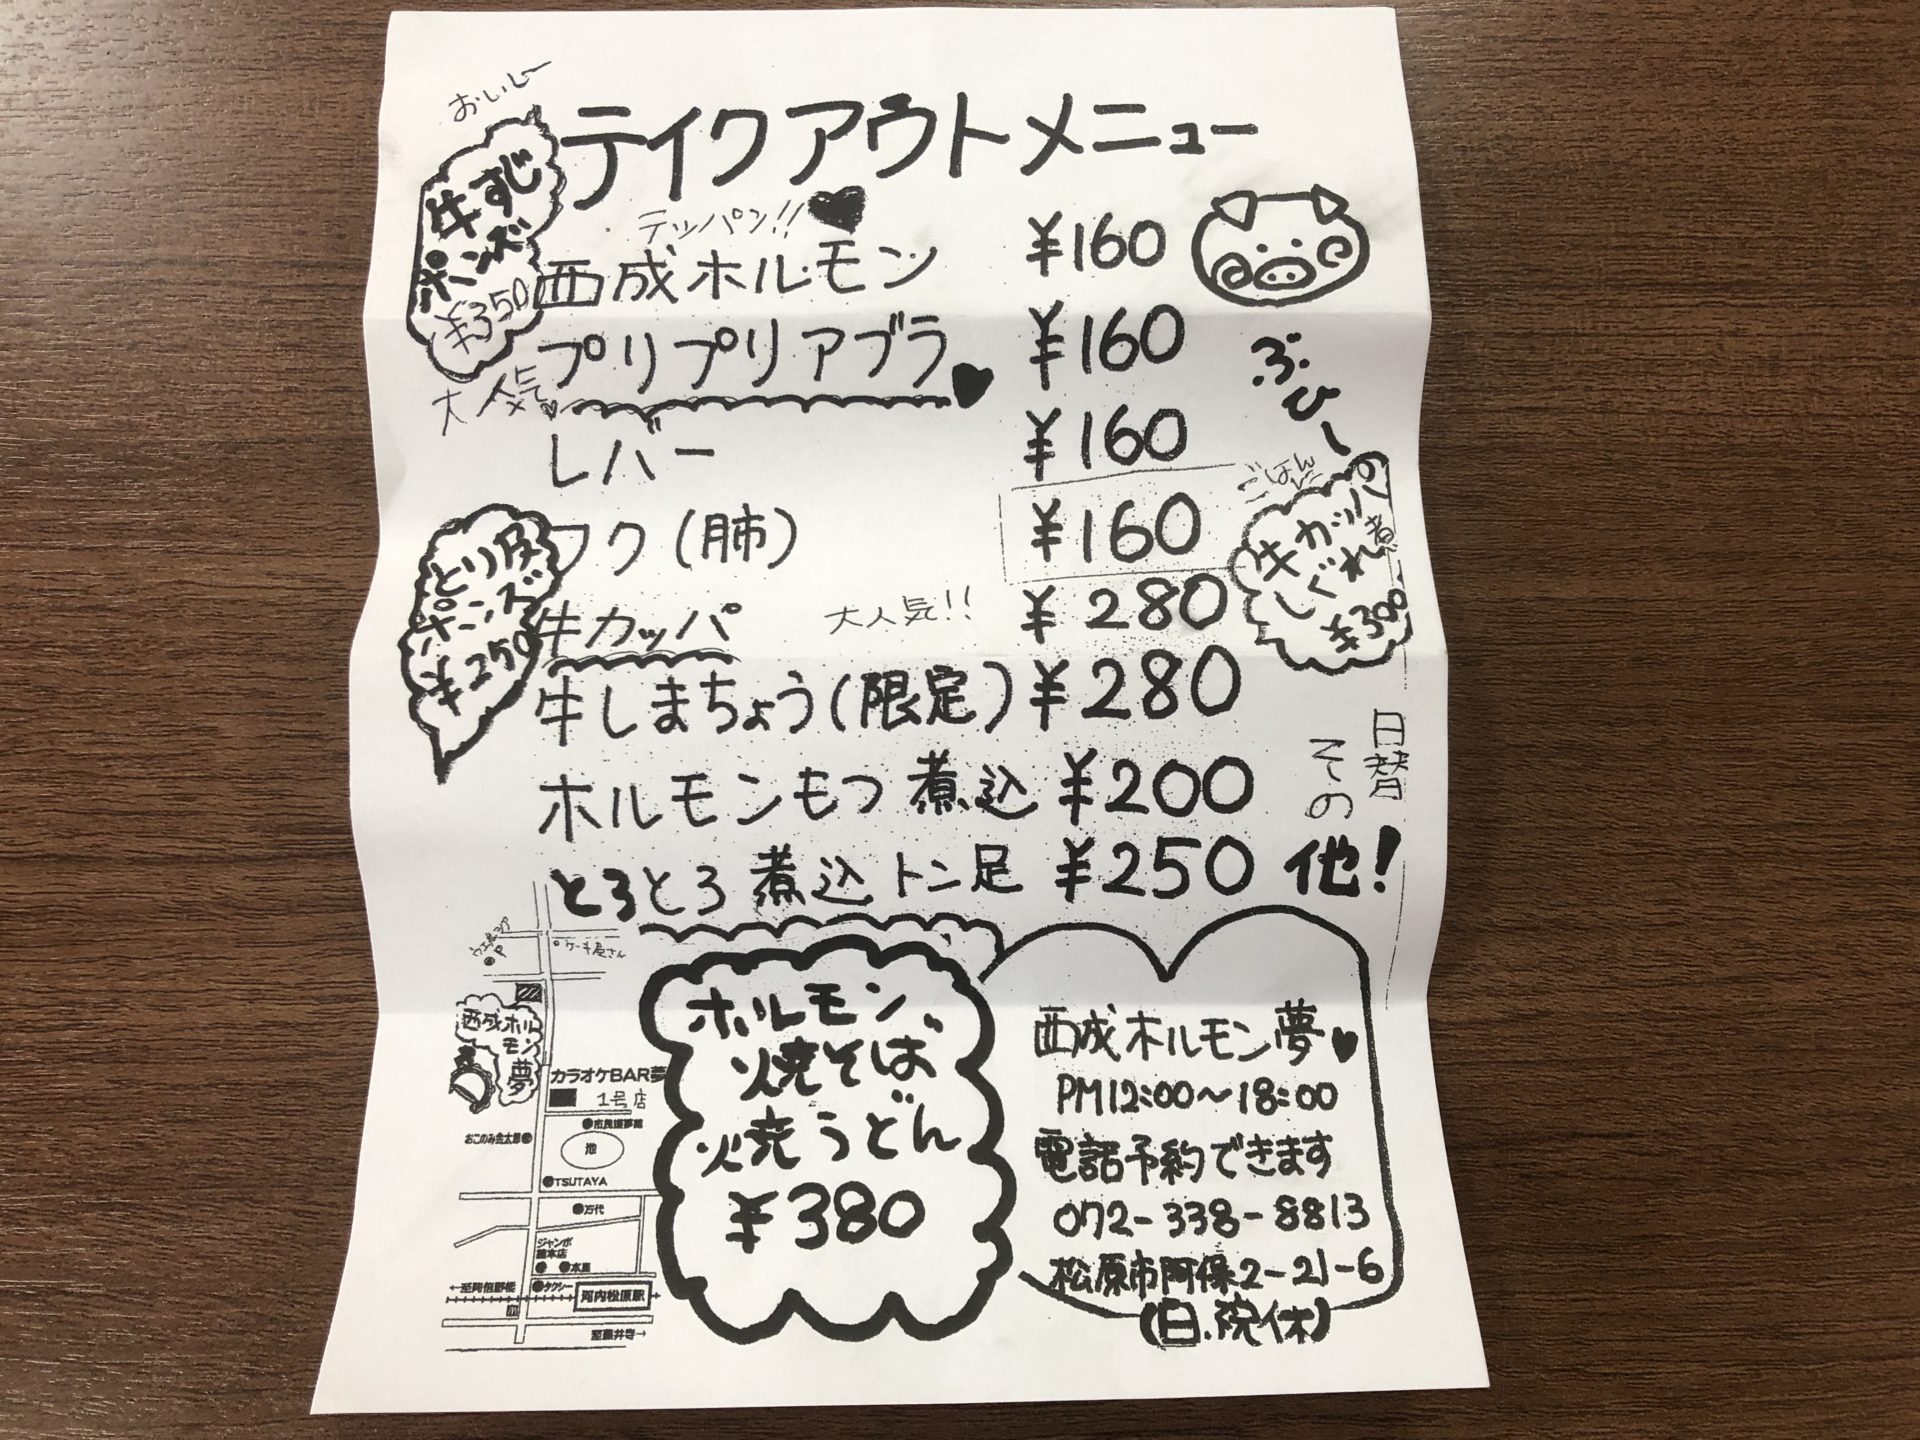 おいしー
テイクアウトメニュー
牛すじ
ポンズ
¥350
テッパン!!
西成ホルモン ¥160
プリプリアブラ ¥160
大人気
レバー ¥160
ぶひー
フク(肺) ¥160
ごはんの
牛カッパ
しぐれ煮
¥300
とり皮
ポンズ
¥250
牛カッパ 大人気!! ¥280
牛しまちょう(限定) ¥280
ホルモンもつ煮込 ¥200
とろとろ煮込トン足 ¥250
日替
その
他!
P
ケーキ屋さん
西成ホル
モン
夢
カラオケBAR夢
1号店
おこのみ金太郎
池
TSUTAYA
万代
ジャンボ
本屋
タクシー
河内松原駅
←至阿倍野橋
至藤井寺→
ホルモン、
焼そば
焼うどん
¥380
西成ホルモン夢
PM12:00〜18:00
電話予約できます
072-338-8813
松原市阿保2-21-6